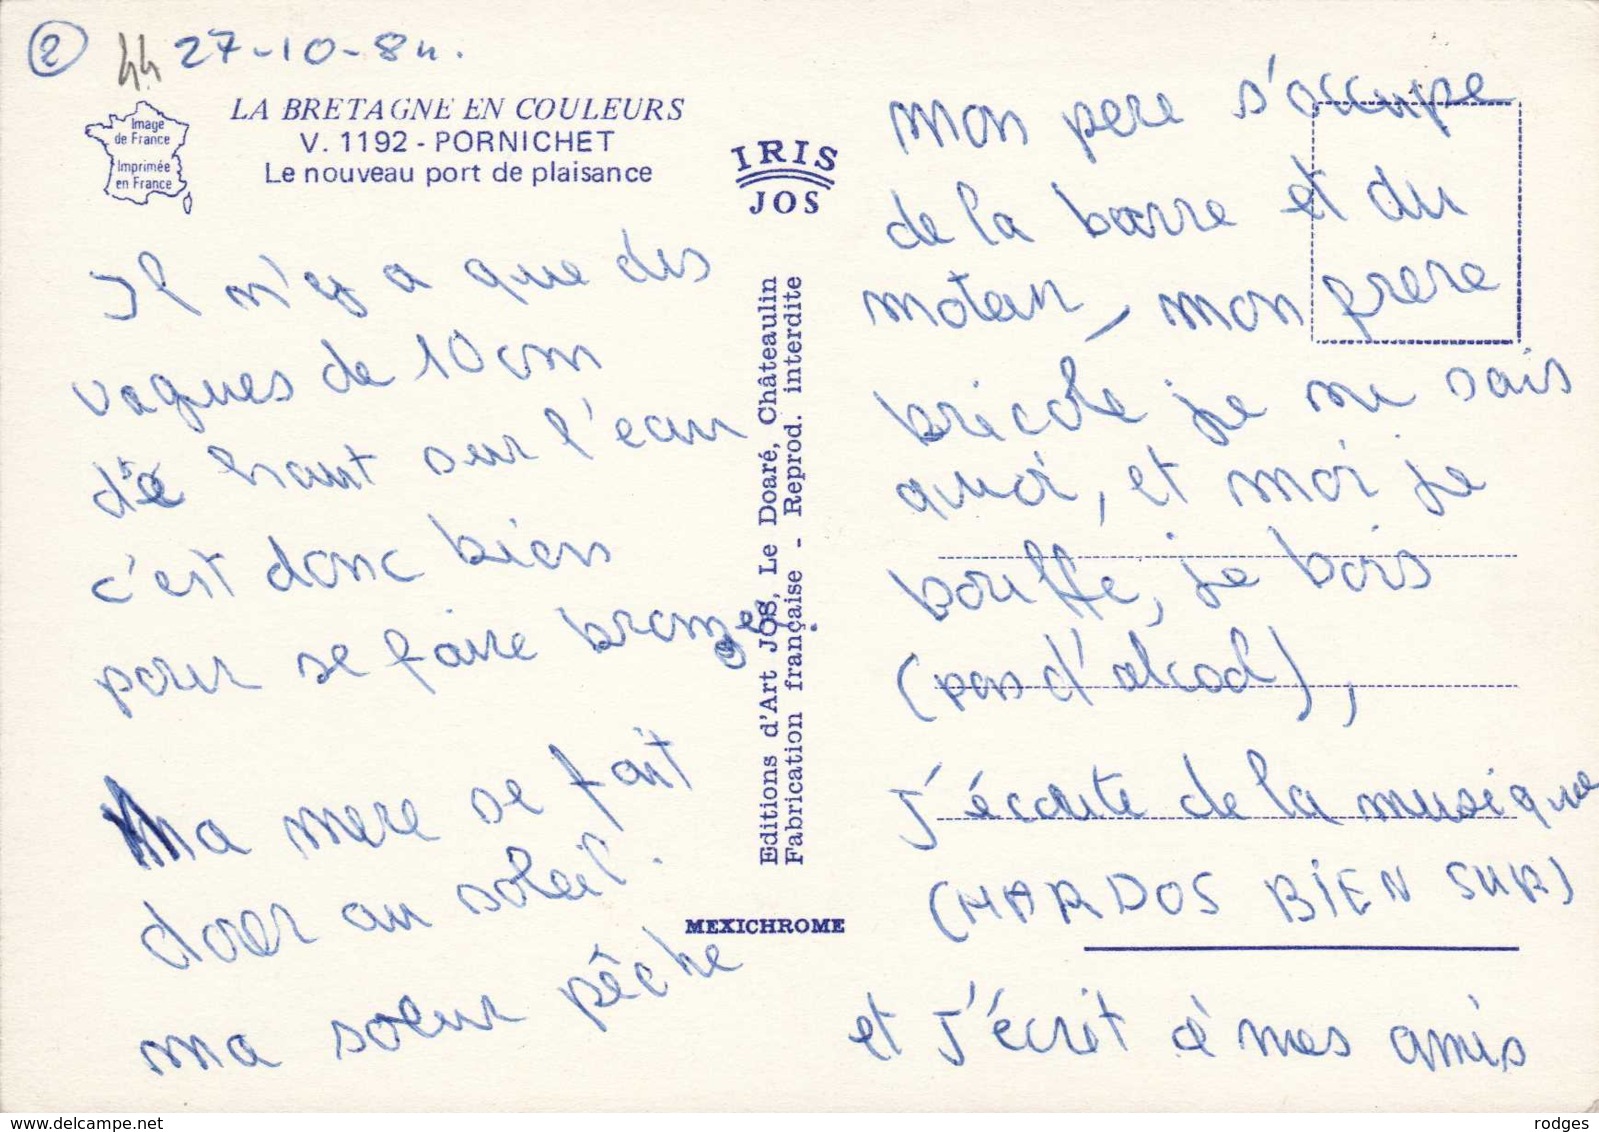 2
44
27-10-84.
LA BRETAGNE EN COULEURS
V. 1192 - PORNICHET
Le nouveau port de plaisance
Image
de France
Imprimée
en France
IRIS
JOS
Il n'y a que des
vagues de 10 cm
de haut sur l'eau
c'est donc bien
pour se faire bronzer.
Ma mere se fait
dorer au soleil.
ma soeur pêche
Editions d'Art JOS, Le Doaré, Châteaulin
Fabrication française - Reprod. interdite
MEXICHROME
mon pere s'occupe
de la barre et du
moteur, mon frere
bricole je ne sais
quoi, et moi je
bouffe, je bois
(pas d'alcool),
J'écoute de la musique
(HARDOS BIEN SUR)
et J'écrit à mes amis
delcampe.net
rodges